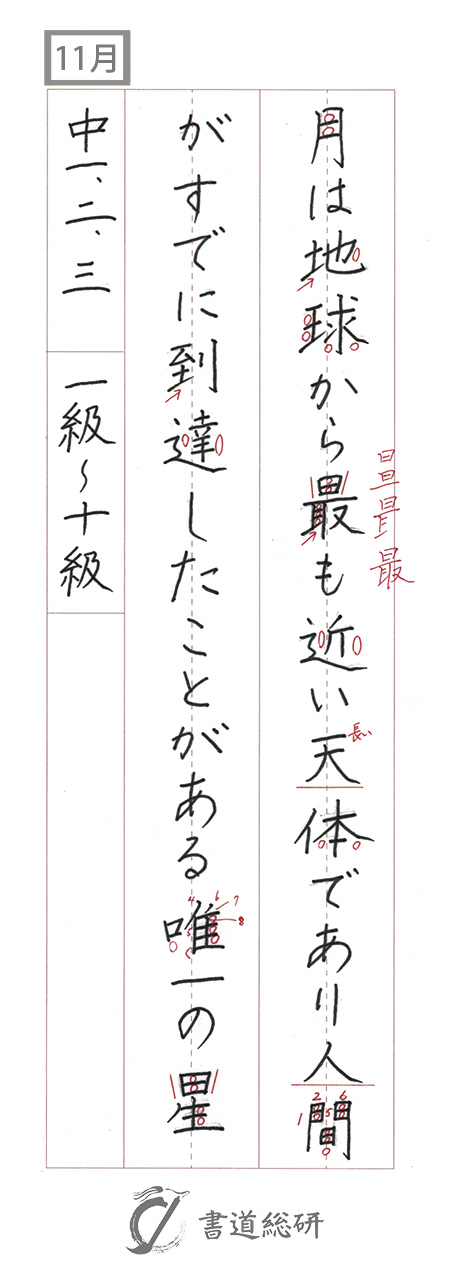 11月
月は地球から最も近い天体であり人間
がすでに到達したことがある唯一の星
中一、二、三 一級～十級
長い
最
1 2 5 6
4 5 6 7 8
書道総研